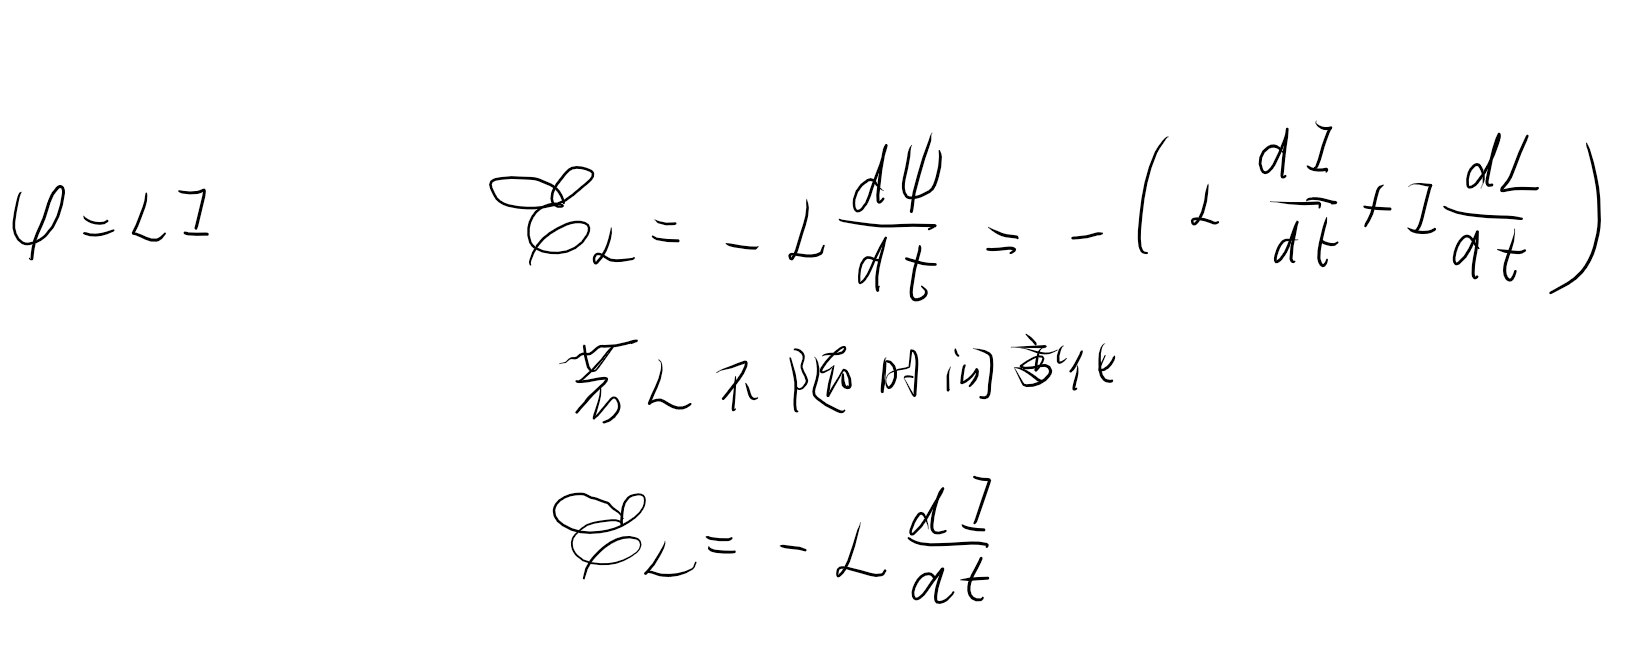 ψ = LI
ℰ_L = - L dψ/dt = - ( L dI/dt + I dL/dt )
若L不随时间变化
ℰ_L = - L dI/dt